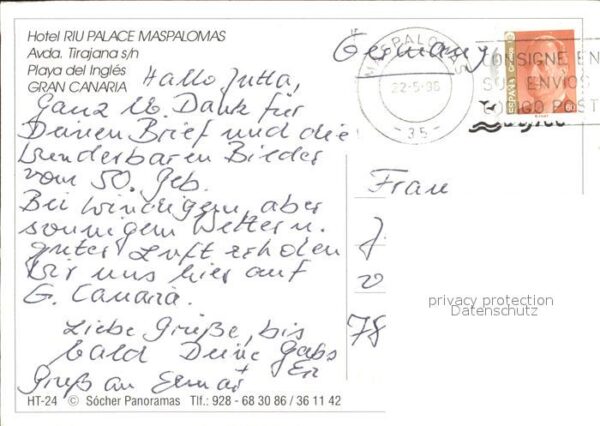 Hotel RIU PALACE MASPALOMAS
Avda. Tirajana s/n
Playa del Inglés
GRAN CANARIA
Germany
MASPALOMAS
22-5-96
-35-
CONSIGNE EN
SUS ENVIOS
CODIGO POST
ESPAÑA
Hallo Jutta,
Ganz lb. Dank für
Deinen Brief und die
wunderbaren Bilder
vom 50. Geb.
Bei windigem, aber
sonnigem Wetter u.
guter Luft erholen
wir uns hier auf
G. Canaria.
Liebe Grüße, bis
bald Deine Gabs
Gruß an
Frau
J
78
privacy protection
Datenschutz
HT-24 © Sócher Panoramas Tlf.: 928 - 68 30 86 / 36 11 42